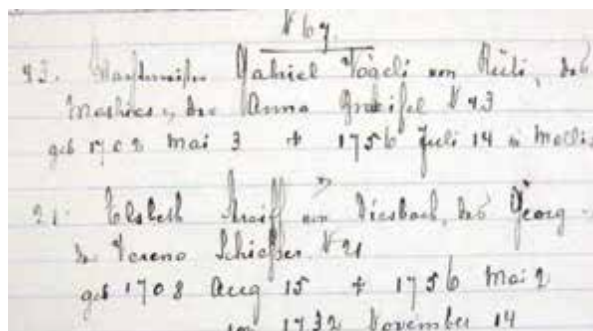 N 67.
93. Gabriel Vögeli von Rüti, des
Mathias u. der Anna N 43
geb 1702 Mai 3 + 1756 Juli 14 in Mollis
21. Elsbeth Streiff von Diesbach, des Georg
Schiesser N 21
geb 1708 Aug 15 + 1756 Mai 2
1732 November 14